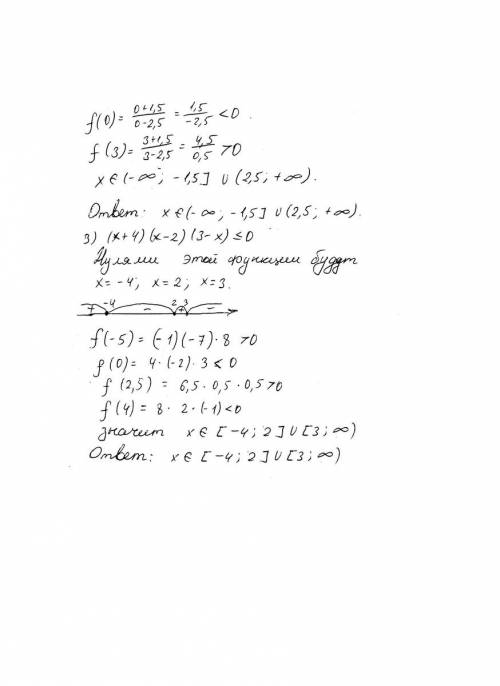 f(0) = (0+1,5)/(0-2,5) = 1,5/(-2,5) < 0.
f(3) = (3+1,5)/(3-2,5) = 4,5/0,5 > 0
x ∈ (-∞; -1,5] ∪ (2,5; +∞).
Ответ: x ∈ (-∞, -1,5] ∪ (2,5; +∞).
3) (x+4)(x-2)(3-x) ≤ 0
Нулями этой функции будут
x = -4; x = 2; x = 3.
+ -4 - 2 + 3 -
f(-5) = (-1)(-7)·8 > 0
f(0) = 4·(-2)·3 < 0
f(2,5) = 6,5·0,5·0,5 > 0
f(4) = 8·2·(-1) < 0
значит x ∈ [-4; 2] ∪ [3; ∞)
Ответ: x ∈ [-4; 2] ∪ [3; ∞)